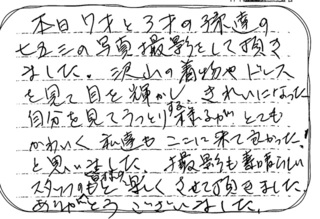 本日7才と3才の孫達の
七五三の写真撮影をして頂き
ました。沢山の着物やドレス
を見て目を輝かし、きれいになった
自分を見てうっとりする様子がとても
かわいく私達もここに来てよかった。
と思いました。撮影も素晴らしい
スタッフのもと楽しくさせて頂きました。
ありがとうございました。